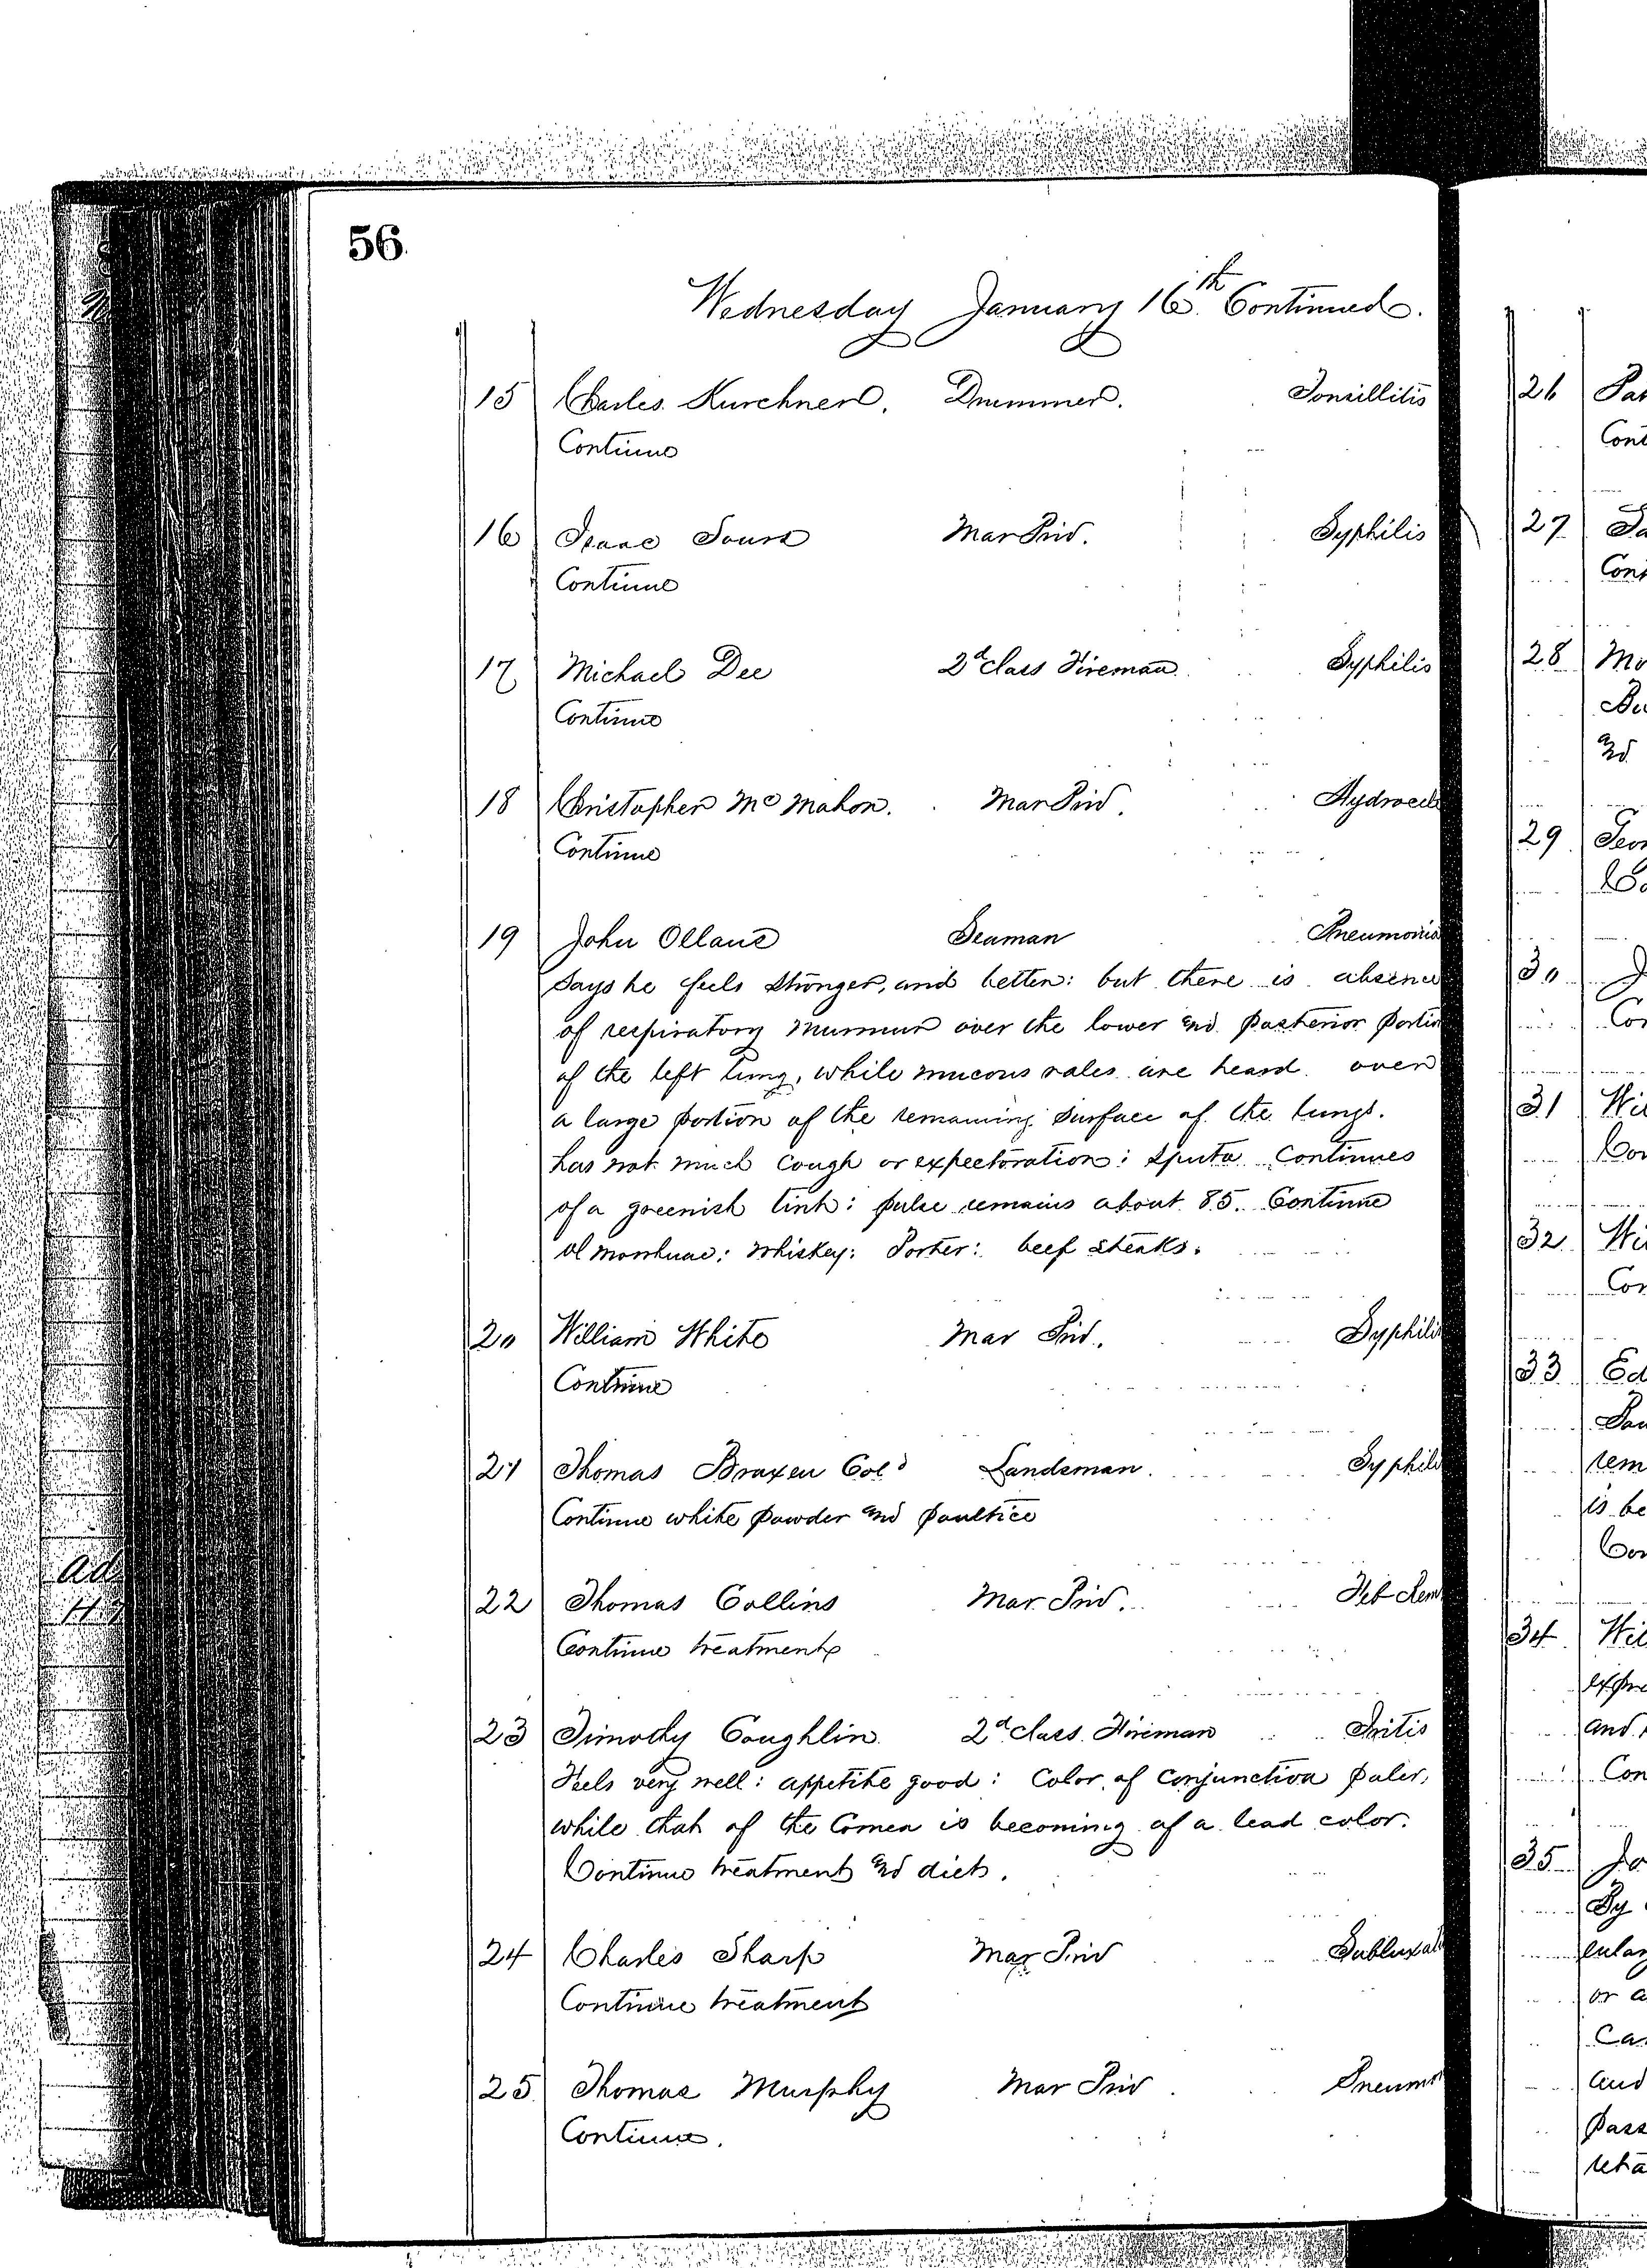 56
Wednesday January 16th Continued.
15 Charles Kurchner. Drummer. Tonsillitis
Continue
16 Isaac Sours Mar Priv. Syphilis
Continue
17 Michael Dee 2d Class Fireman Syphilis
Continue
18 Christopher Mc Mahon. Mar Priv. Hydrocele
Continue
19 John Ollane Seaman Pneumonia
Says he feels stronger, and better: but there is absence
of respiratory murmur over the lower and posterior portion
of the left lung, while mucous rales are heard over
a large portion of the remaining surface of the lungs.
has not much cough or expectoration: sputa continues
of a greenish tint: pulse remains about 85. Continue
Ol morrhuae: Whiskey: Porter: beef steaks.
20 William White Mar Priv. Syphilis
Continue
21 Thomas Braxen Cold Landsman. Syphili
Continue white powder and poultice
22 Thomas Collins Mar Priv. Feb Rem
Continue treatment
23 Timothy Coughlin 2d Class Fireman Iritis
Feels very well: appetite good: Color of Conjunctiva paler,
while that of the Cornea is becoming of a lead color.
Continue treatment and diet.
24 Charles Sharp Mar Priv Subluxat
Continue treatment
25 Thomas Murphy Mar Priv Pneumo
Continue.
26
27
28
29
30
31
32
33
34
35